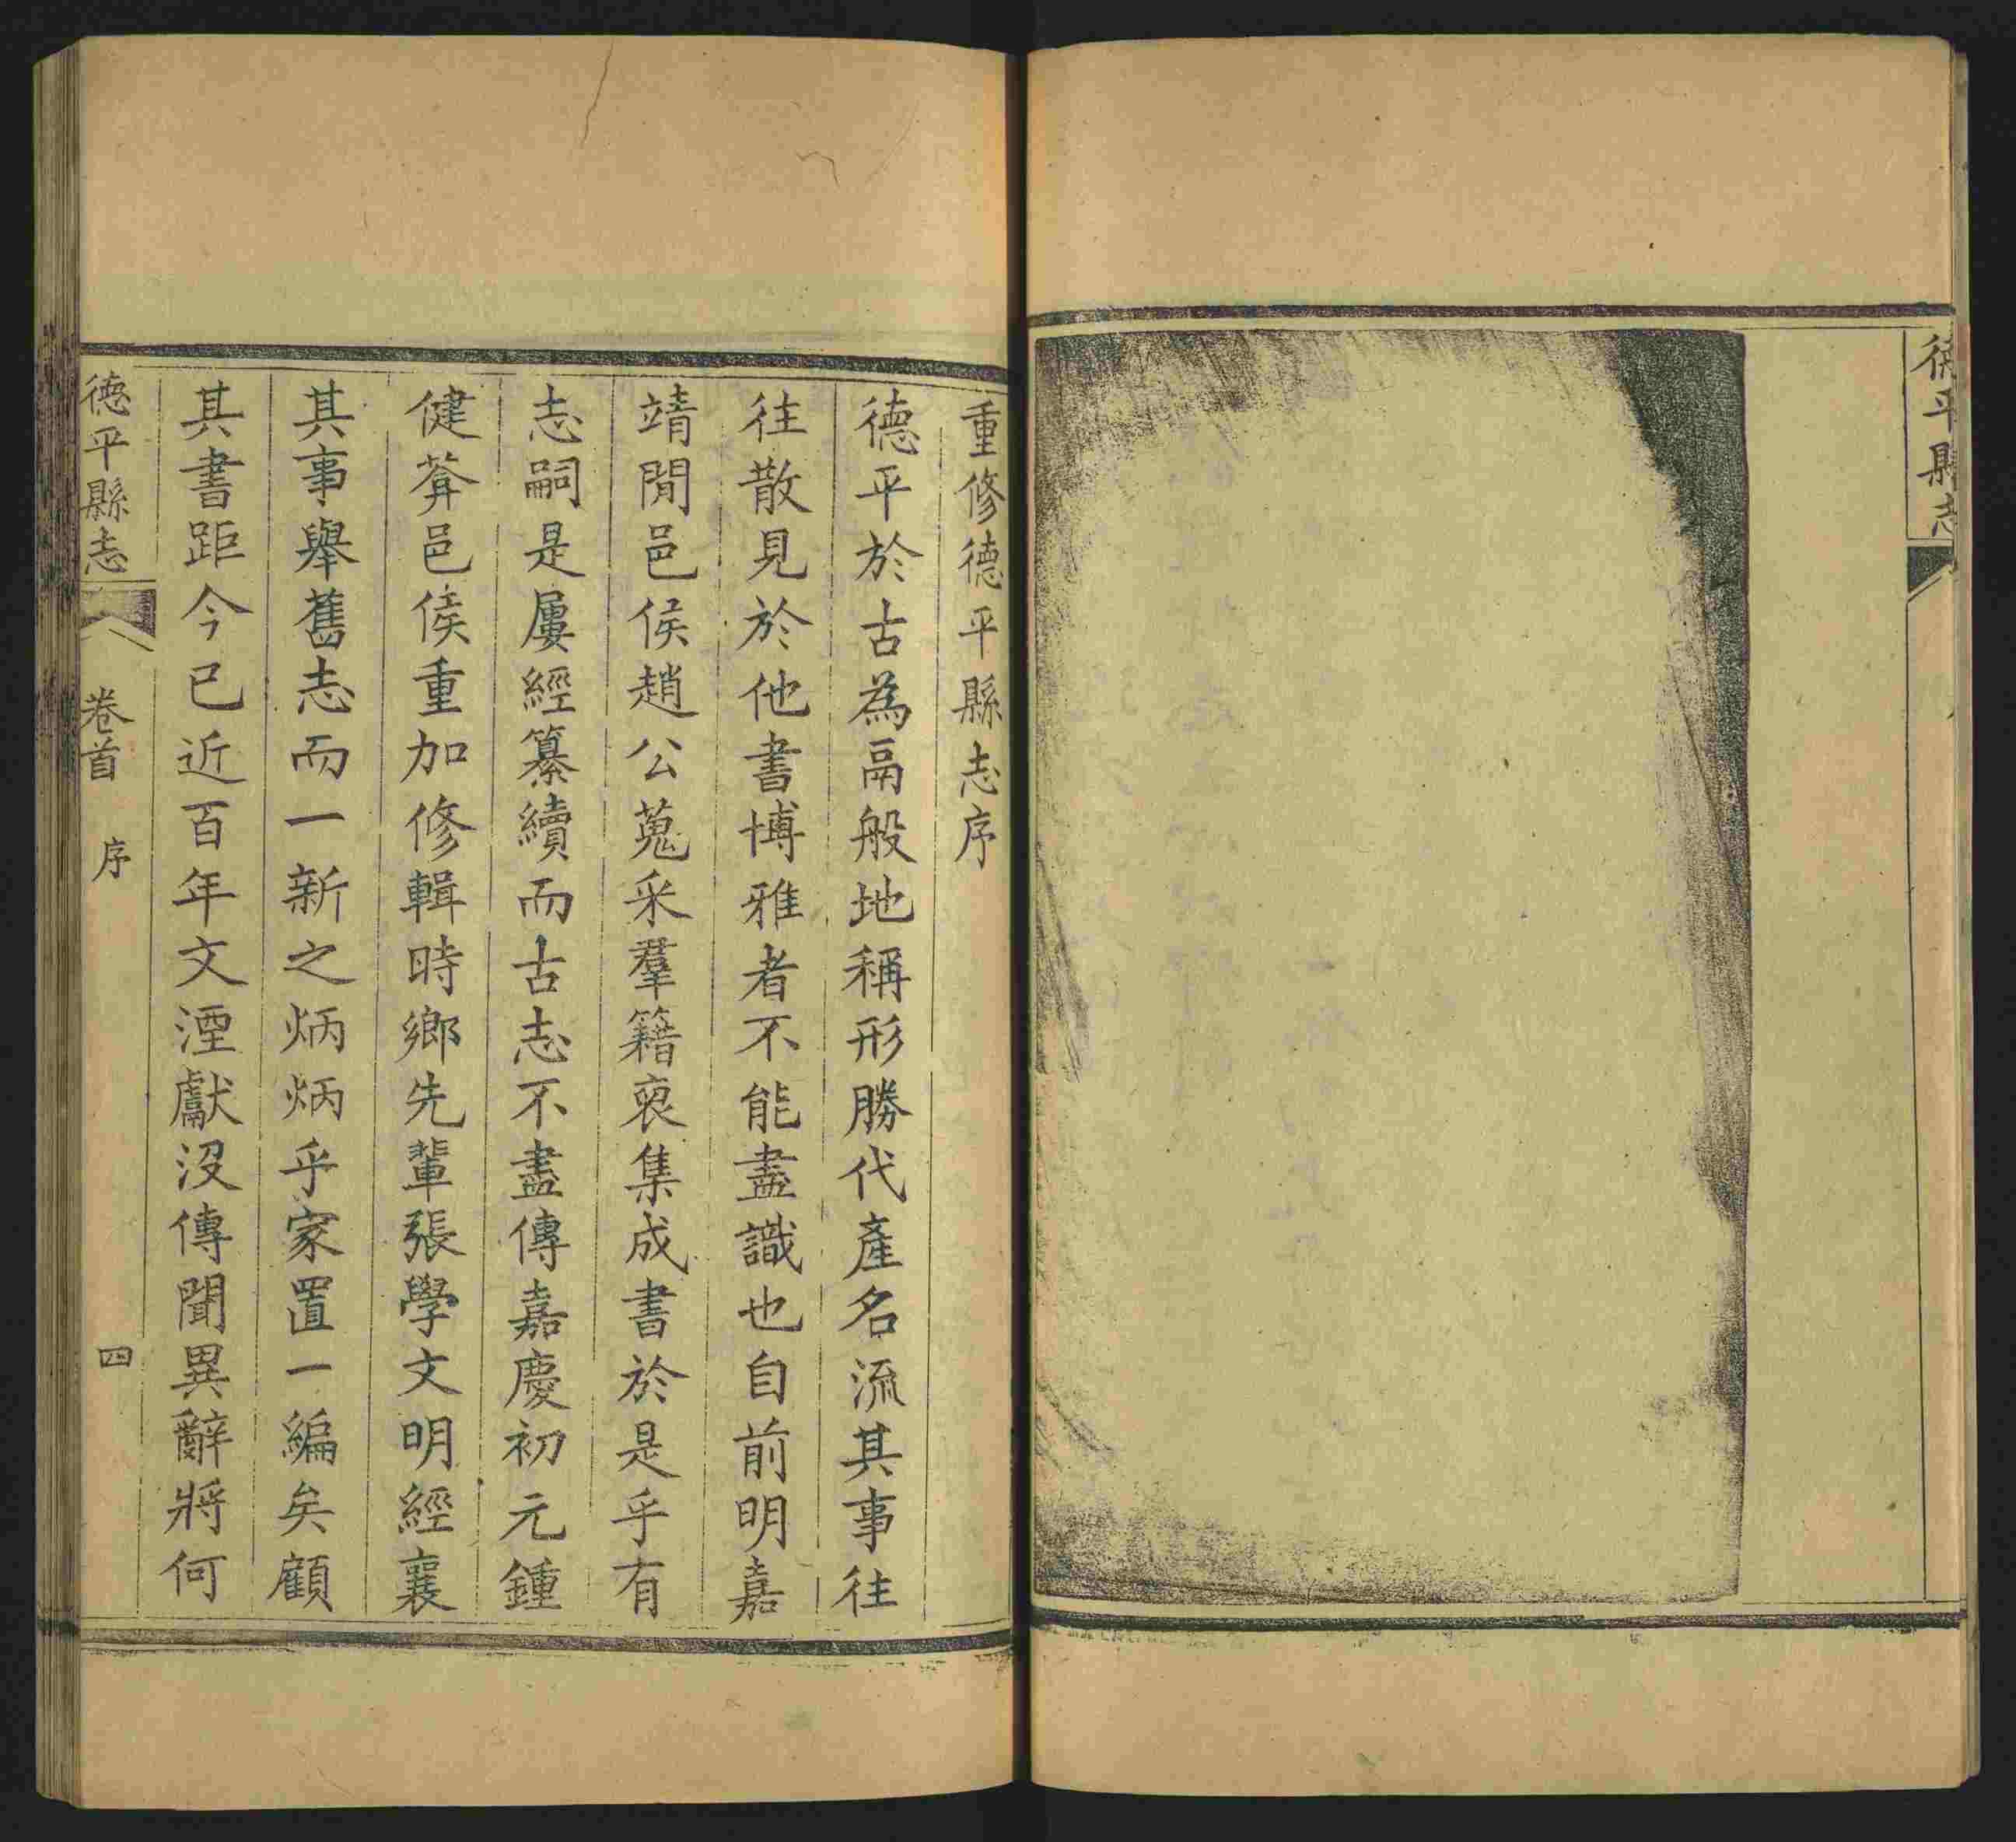 德平縣志
重修德平縣志序
德平於古為鬲般地稱形勝代產名流其事往
往散見於他書博雅者不能盡識也自前明嘉
靖間邑侯趙公蒐采羣籍裒集成書於是乎有
志嗣是屢經纂續而古志不盡傳嘉慶初元鍾
健葊邑侯重加修輯時鄉先輩張學文明經襄
其事舉舊志而一新之炳炳乎家置一編矣顧
其書距今已近百年文湮獻沒傳聞異辭將何
德平縣志 卷首 序 四